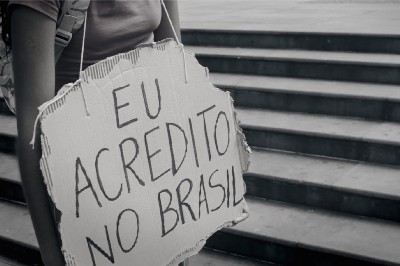 EU
ACREDITO
NO BRASIL